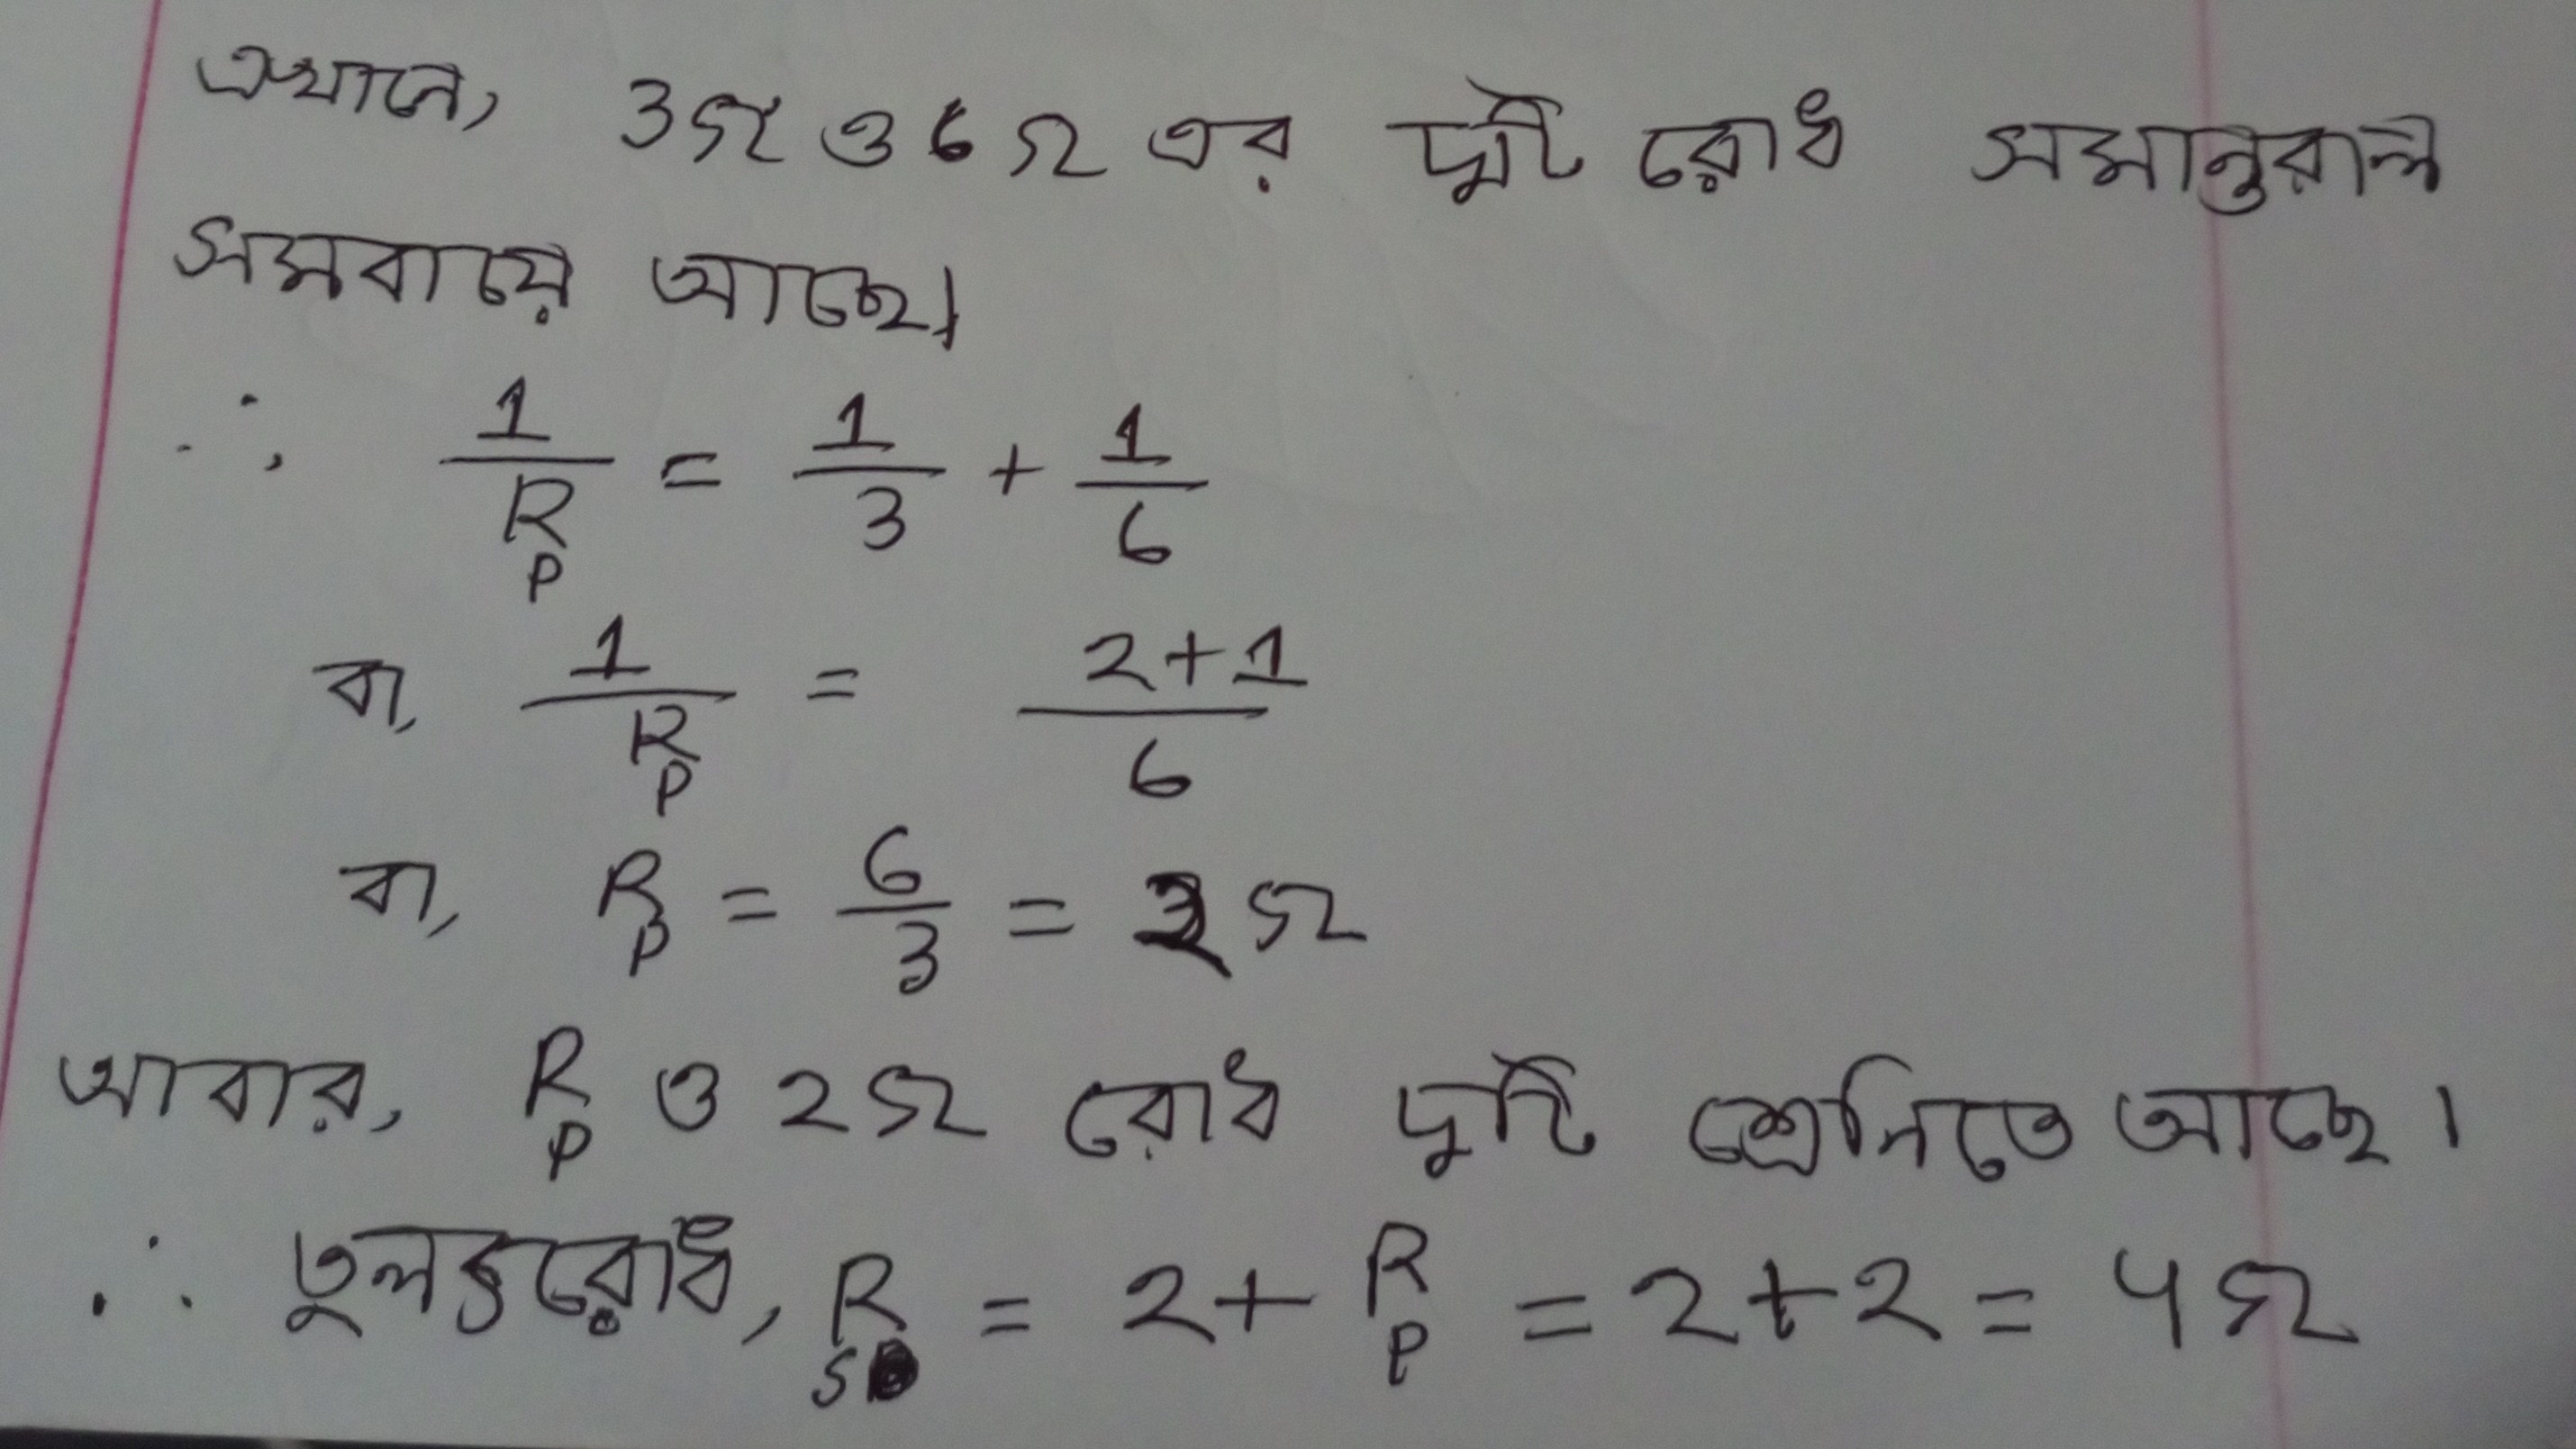 এখানে, 3Ω ও 6Ω এর দুটি রোধ সমান্তরাল
সমবায়ে আছে।
∴, 1/R_P = 1/3 + 1/6
বা, 1/R_P = 2+1/6
বা, R_P = 6/3 = 2Ω
আবার, R_P ও 2Ω রোধ দুটি শ্রেনিতে আছে।
∴ তুল্যরোধ, R_S = 2 + R_P = 2+2 = 4Ω